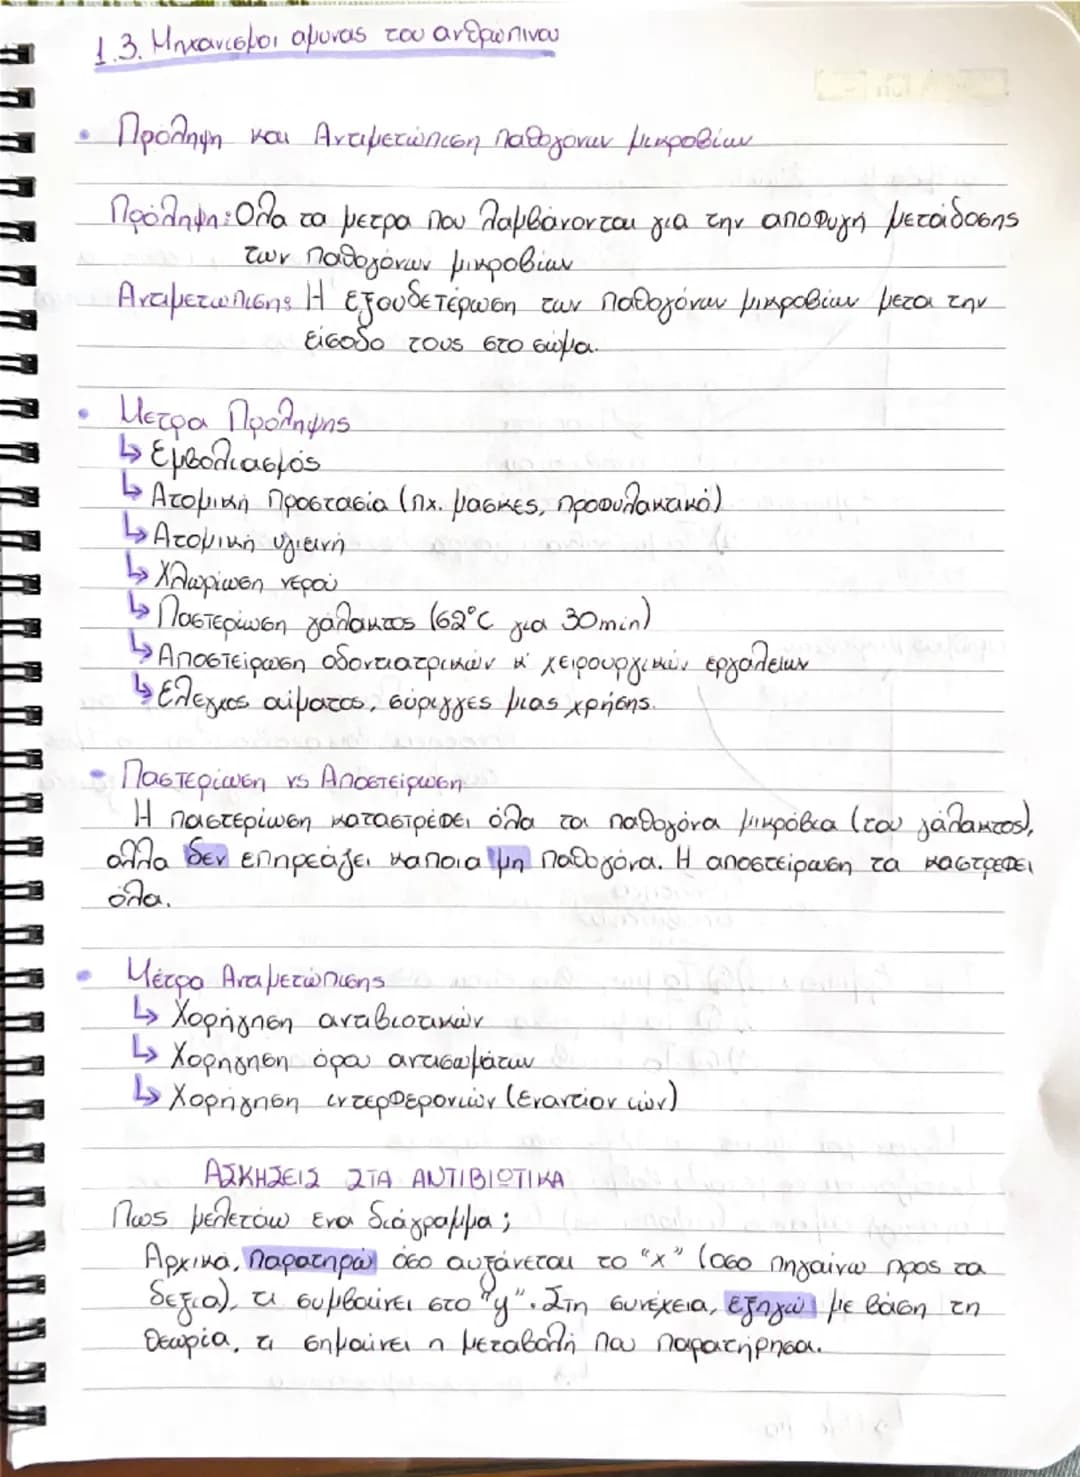 1.3. Μηχανισμοι αμυνας του ανθρωπινου
• Πρόληψη και Αντιμετώπιση παθογονων μικροβίων
Πρόληψη: Ολα τα μετρα που λαμβάνονται για την αποφυγή μετάδοσης
των παθογόνων μικροβίων
Αντιμετωπιση: Η εξουδετέρωση των παθογόνων μικροβίων μετα την
είσοδο τους στο σώμα.
• Μετρα Πρόληψης
↳ Εμβολιασμός
↳ Ατομική προστασία (πχ. μασκες, προφυλακτικό)
↳ Ατομική υγιεινή
↳ Χλωρίωση νερού
↳ Παστερίωση γάλακτος (62°C για 30min)
↳ Αποστείρωση οδοντιατρικών κ' χειρουργικών εργαλείων
↳ Ελεγχος αίματος, σύριγγες μιας χρήσης.
• Παστερίωση vs Αποστείρωση
Η παστερίωση καταστρέφει όλα τα παθογόνα μικρόβια (του γάλακτος),
αλλα δεν επηρεάζει καποια μη παθογόνα. Η αποστείρωση τα καστρεφει
όλα.
• Μέτρα Αντιμετώπισης
↳ Χορήγηση αντιβιοτικών
↳ Χορηγηση όρου αντισωμάτων
↳ Χορήγηση ιντερφερονών (Εναντίον ιών)
ΑΣΚΗΣΕΙΣ ΣΤΑ ΑΝΤΙΒΙΟΤΙΚΑ
Πως μελετάω ενα διάγραμμα;
Αρχικά, παρατηρώ όσο αυξάνεται το "x" (οσο πηγαίνω προς τα
δεξια), τι συμβαίνει στο "y". Στη συνέχεια, εξηγώ με βάση τη
θεωρία, τι σημαίνει η μεταβολή που παρατήρησα.